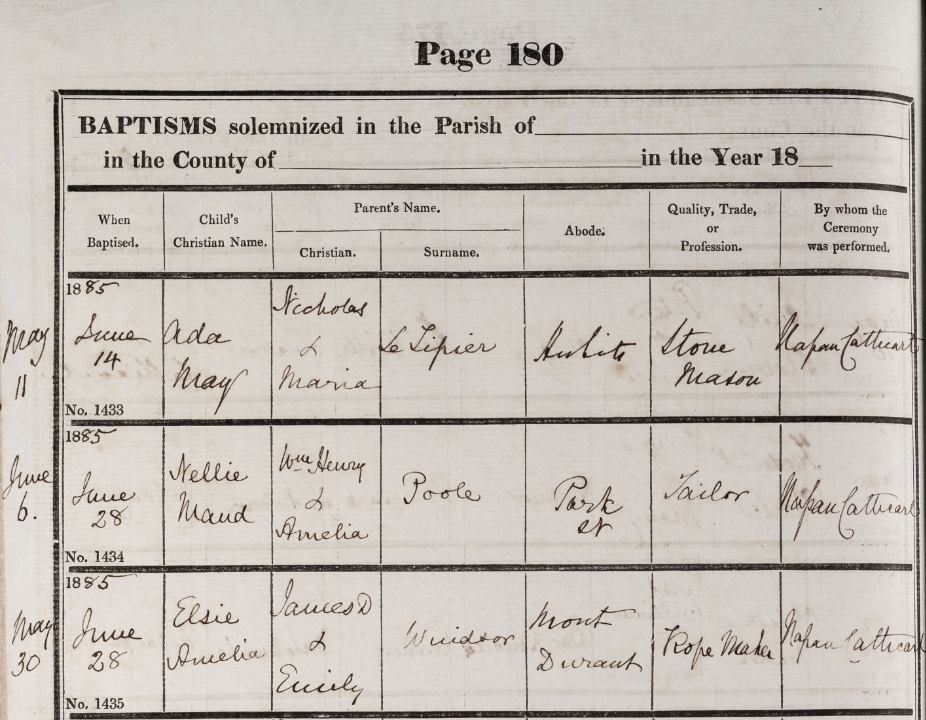 Page 180
BAPTISMS solemnized in the Parish of
in the County of in the Year 18
When Baptised.
Child's Christian Name.
Parent's Name.
Christian.
Surname.
Abode.
Quality, Trade, or Profession.
By whom the Ceremony was performed.
May 11
1885
June 14
No. 1433
Ada May
Nicholas & Maria
Stone Mason
Cathcart
June 6.
1885
June 28
No. 1434
Nellie Maud
Wm Henry & Amelia
Poole
Park St
Tailor
Cathcart
May 30
1885
June 28
No. 1435
Elsie Amelia
James D & Emily
Windsor
Mont Durant
Rope Maker
Cathcart